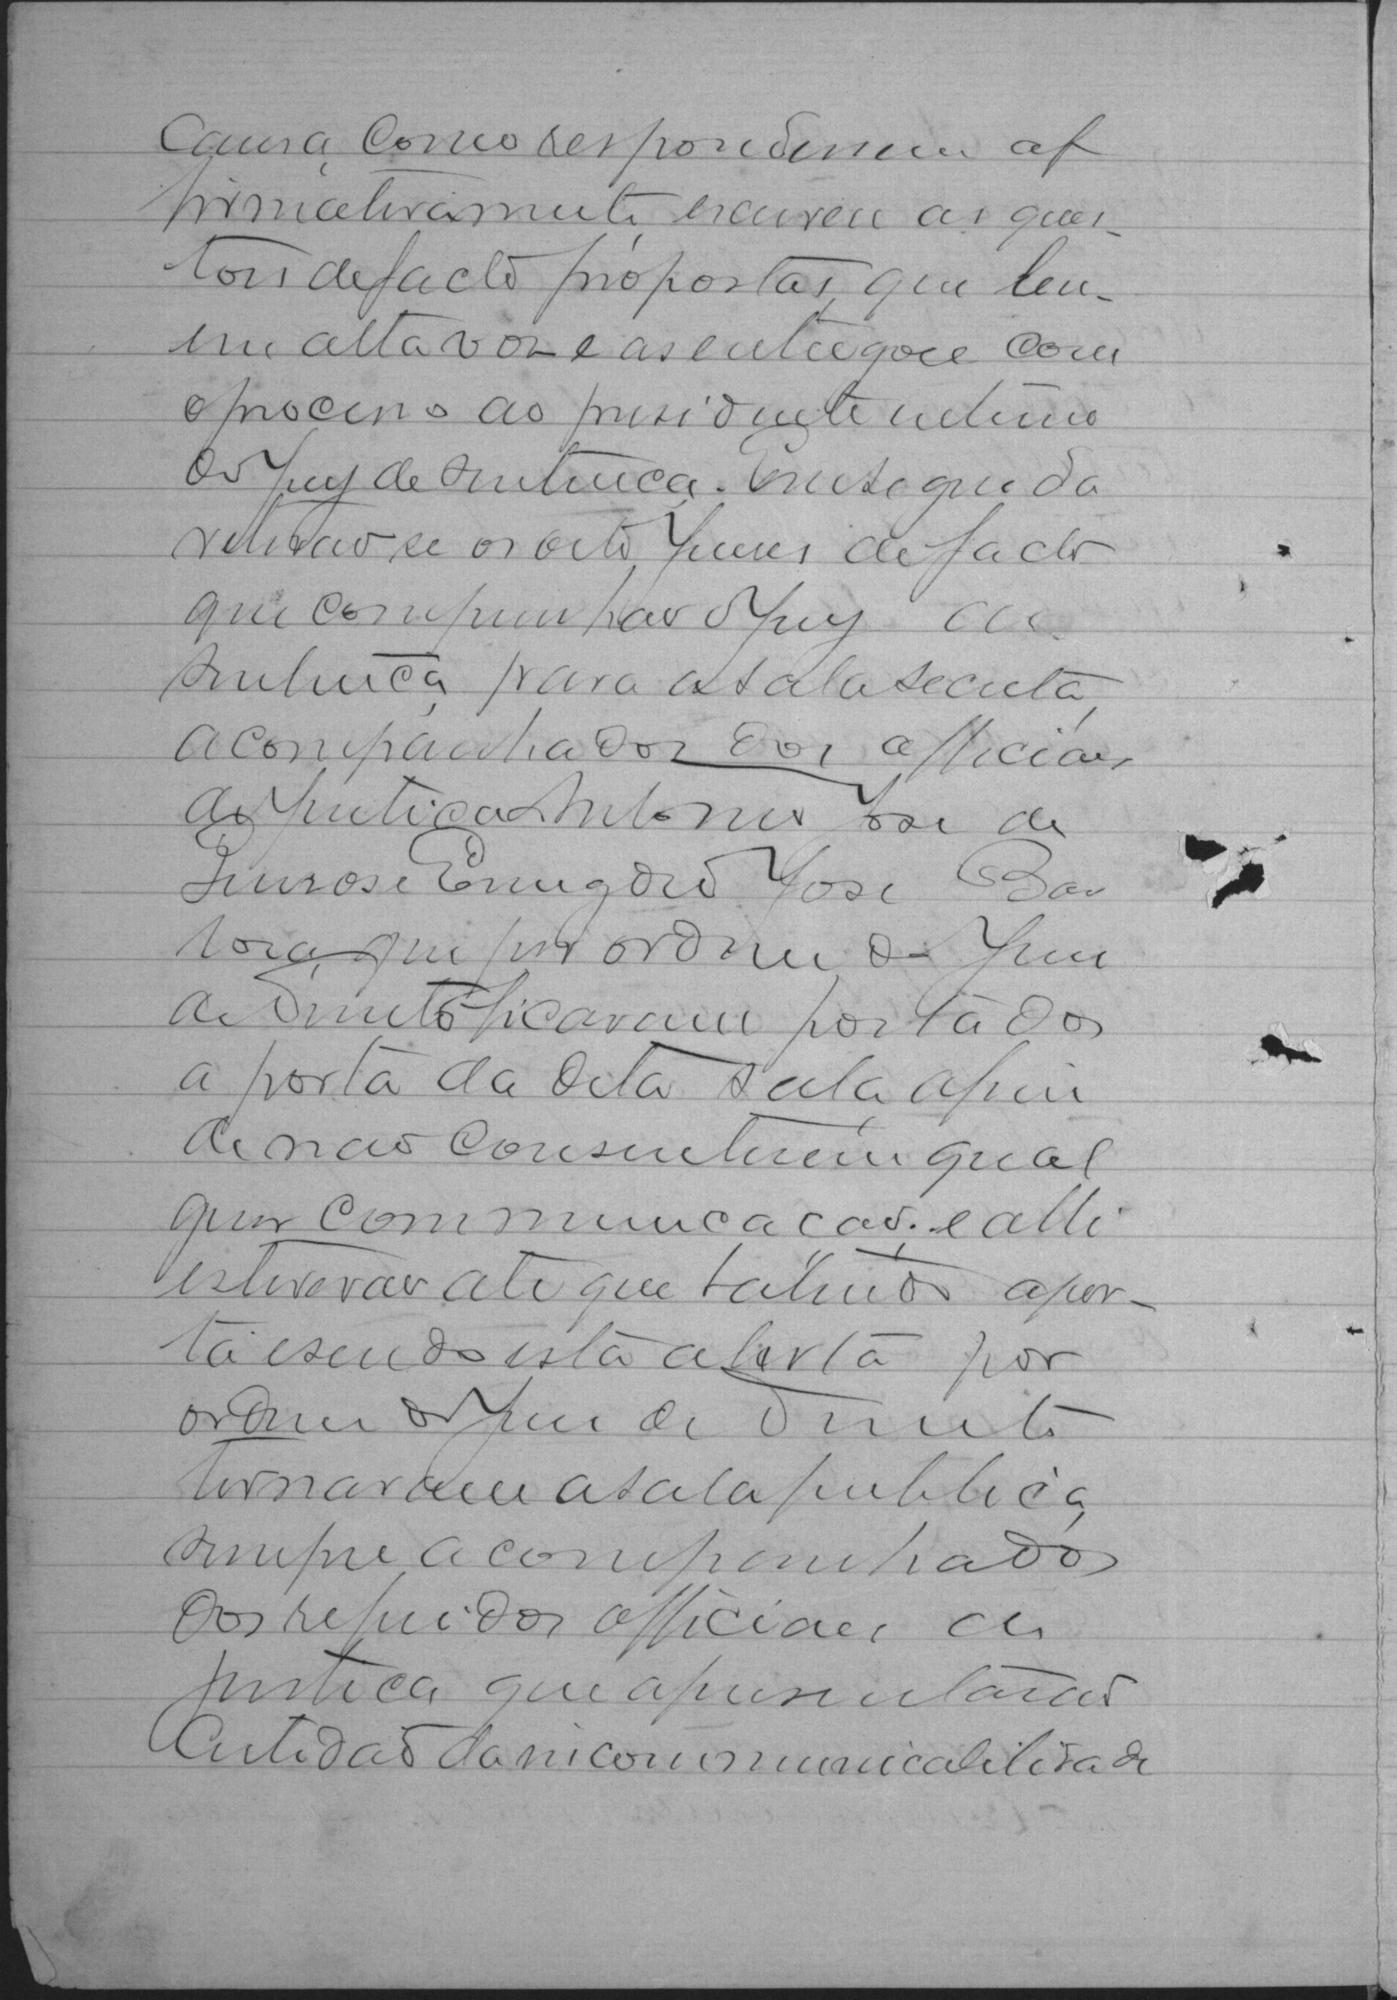 Causa, como respondessem af
firmativamente, escreveu as ques-
tois de facto propostas, que leu-
em alta vos e as entregou com
o processo ao presidente interino
do jury de sentença. Em seguida
retirão se os oito Juises de facto
que compunhão o jury de
sentença, para a sala secreta,
acompanhados dos officiaes
de justica Antonio Jose de
e Emygdio Jose Bar
bosa, que por ordem do Juiz
de Direito ficaram postados
a porta da dita sala, afim
de não consentirem qual
quer communicação. e alli
estiverão ate que baterão a por-
ta e sendo esta aberta por
ordem do Juiz de Direito
tornaram a sala publica,
sempre acompanhados
dos referidos officiaes de
justica que apresentarão
Certidão da incommunicabilidade